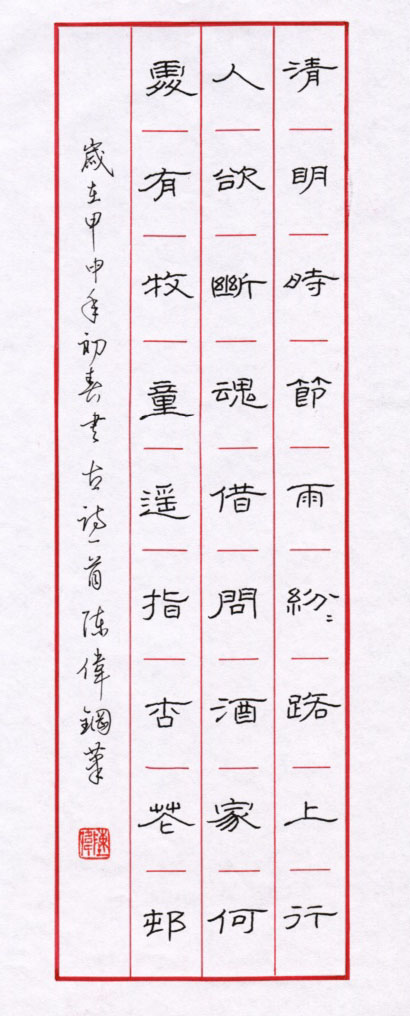 清眀時節雨紛〻路上行
人欲斷魂借問酒家何
處有牧童遥指杏花邨
歲在甲申年初春書古詩一首陳偉鋼筆
陳偉